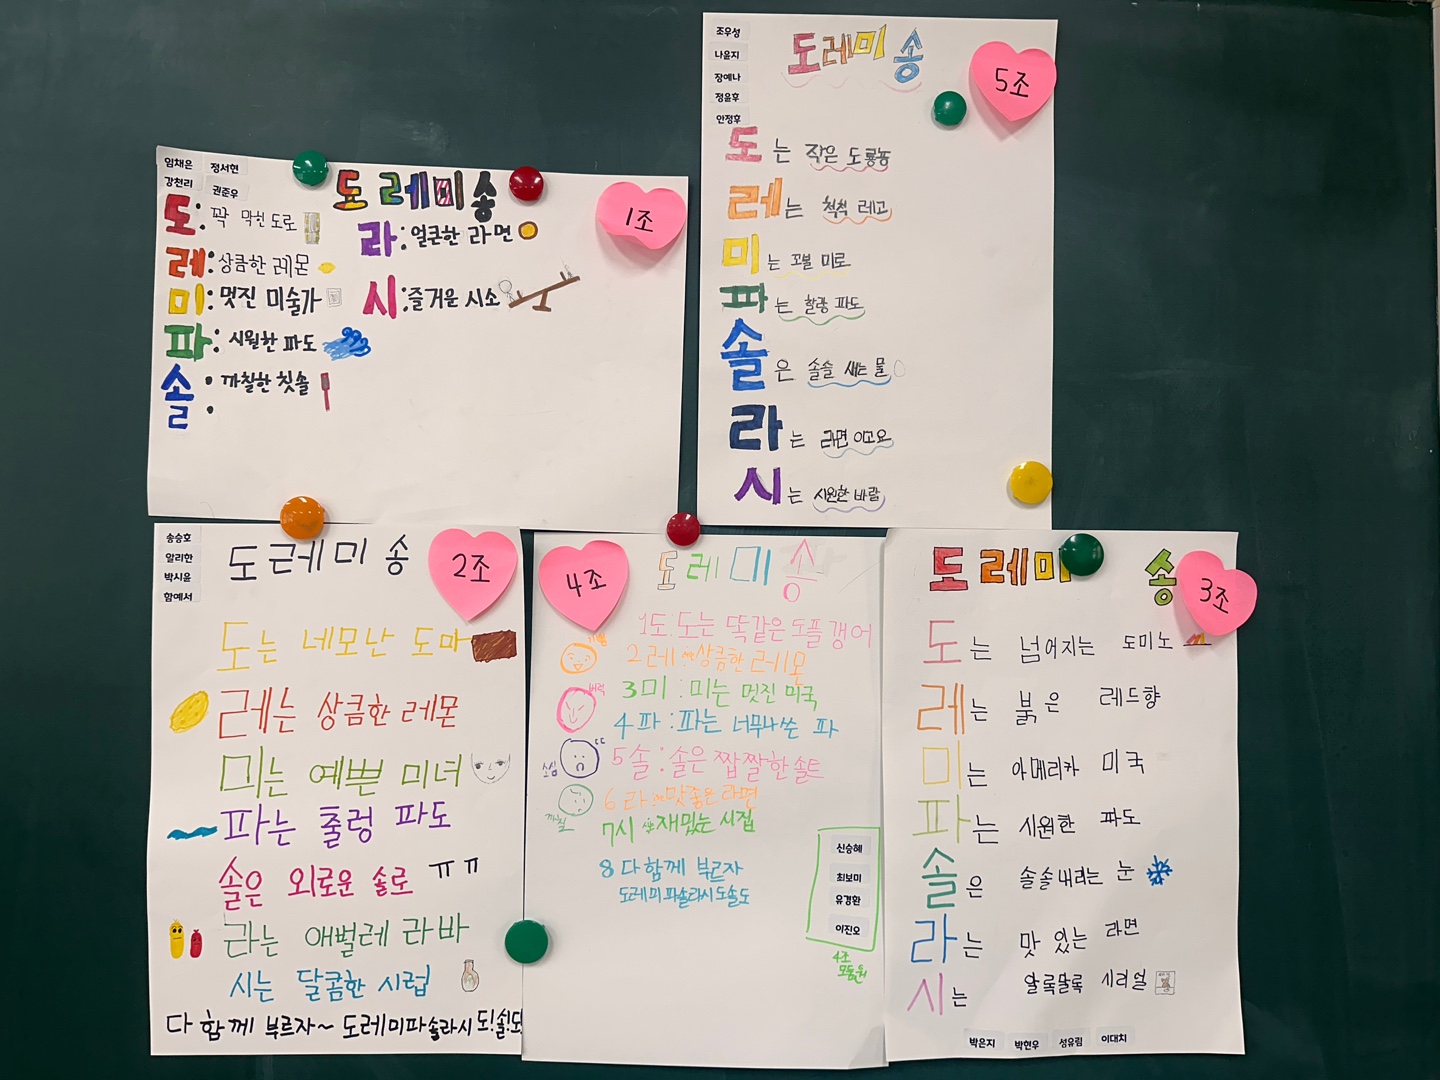 임채은 정서현
강천리 권준우
도레미송
1조
도: 꽉 막힌 도로
레: 상큼한 레몬
미: 멋진 미술가
파: 시원한 파도
솔: 까칠한 칫솔
라: 얼큰한 라면
시: 즐거운 시소
조우성
나윤지
장예나
정윤후
안정후
도레미송
5조
도는 작은 도룡뇽
레는 척척 레고
미는 꼬불 미로
파는 촬랑 파도
솔은 솔솔 새는 물
라는 라면 이고요
시는 시원한 바람
송승호
알리한
박시윤
함예서
도레미송
2조
도는 네모난 도마
레는 상큼한 레몬
미는 예쁜 미녀
파는 출렁 파도
솔은 외로운 솔로 ㅠㅠ
라는 애벌레 라바
시는 달콤한 시럽
다 함께 부르자~ 도레미파솔라시 도!솔!도
4조
도레미송
1도. 도는 똑같은 도플갱어
2레 상큼한 레몬
3미 : 미는 멋진 미국
4파 : 파는 너무나 쓴 파
5솔 : 솔은 짭짤한 솔트
6라 맛좋은 라면
7시 재밌는 시집
8 다함께 부르자
도레미파솔라시도솔도
버럭
소심
까칠
신승혜
최보미
유경환
이진오
4조
모둠원
도레미송
3조
도는 넘어지는 도미노
레는 붉은 레드향
미는 아메리카 미국
파는 시원한 파도
솔은 솔솔 내리는 눈
라는 맛있는 라면
시는 알록달록 시리얼
박은지 박현우 성유림 이대치